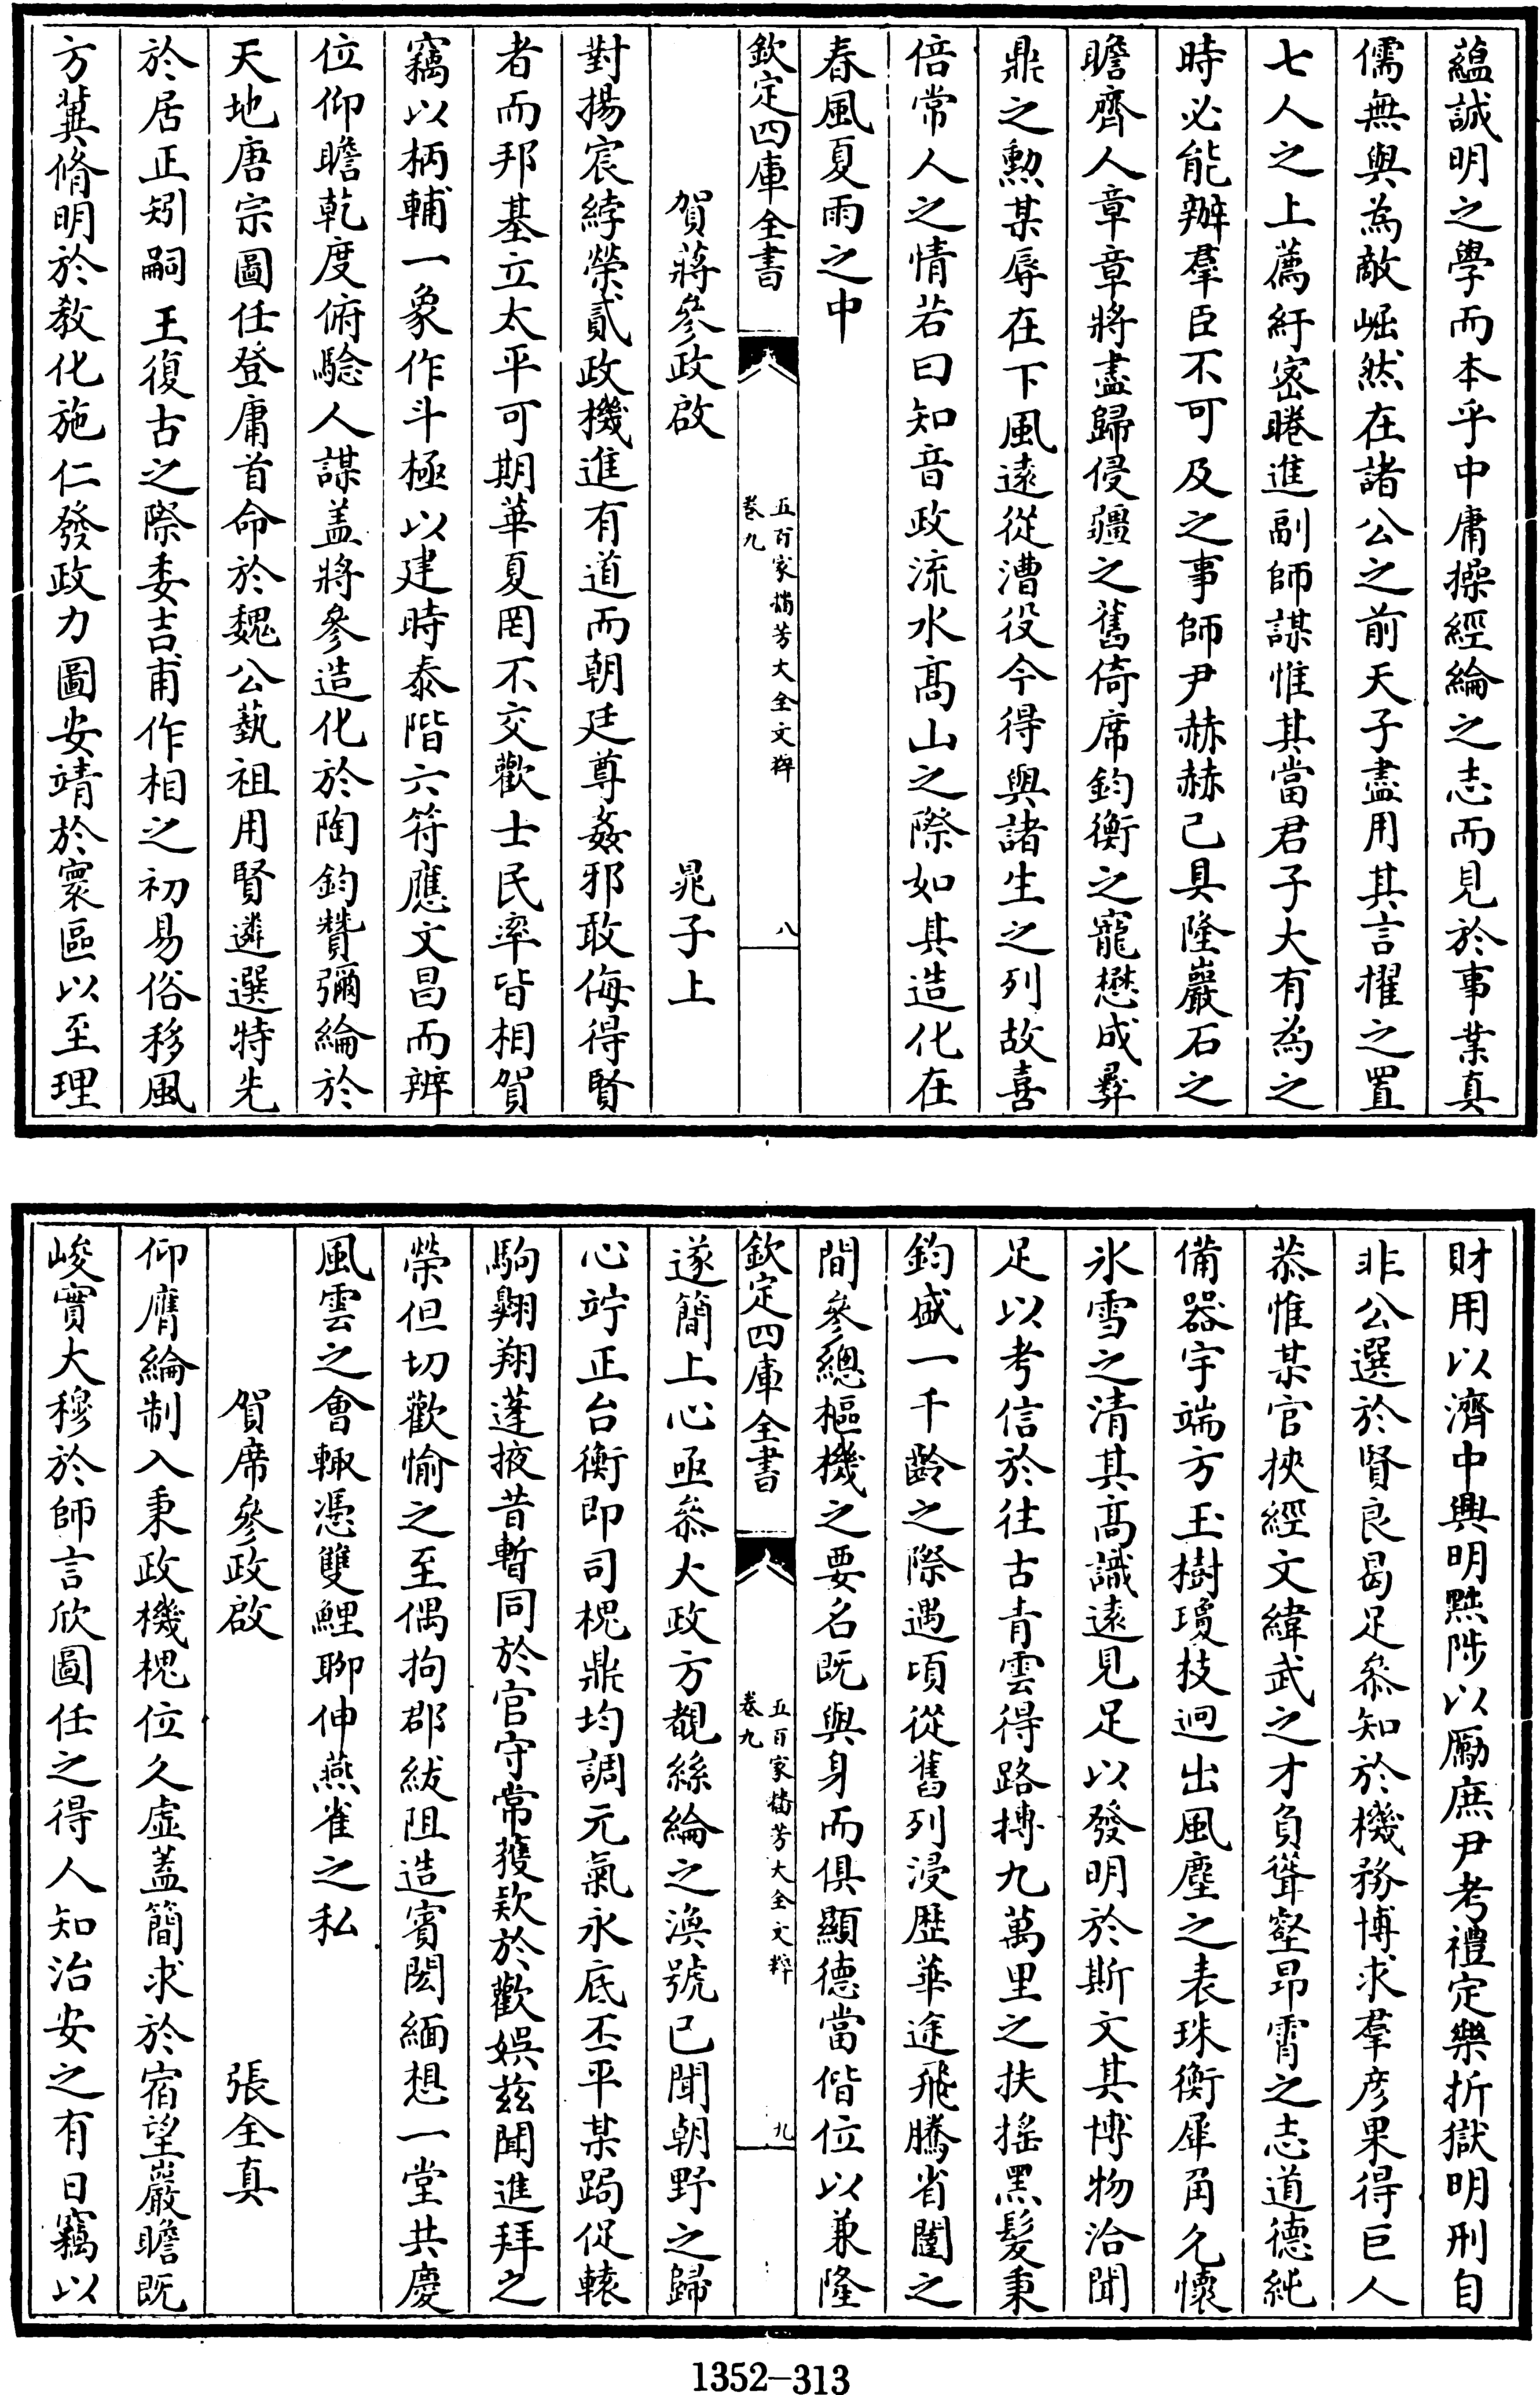 蘊誠明之學而本乎中庸操經綸之志而見於事業真
儒無與為敵崛然在諸公之前天子盡用其言擢之置
七人之上薦紆宻睠進副師謀惟其當君子大有為之
時必能辦羣臣不可及之事師尹赫赫已具隆巖石之
瞻齊人章章將盡歸侵疆之舊倚席鈞衡之寵懋成彛
鼎之勲某辱在下風逺從漕役今得與諸生之列故喜
倍常人之情若曰知音政流水髙山之際如其造化在
春風夏雨之中
欽定四庫全書
五百家播芳大全文粹
卷九
八
賀蔣參政啟 晁子上
對揚宸綍榮貳政機進有道而朝廷尊姦邪敢侮得賢
者而邦基立太平可期華夏罔不交歡士民率皆相賀
竊以柄輔一象作斗極以建時泰階六符應文昌而辨
位仰瞻乾度俯驗人謀盖將參造化於陶鈞贊彌綸於
天地唐宗圖任登庸首命於魏公藝祖用賢遴選特先
於居正矧嗣王復古之際委吉甫作相之初易俗移風
方冀脩明於敎化施仁發政力圖安靖於寰區以至理
財用以濟中興明黜陟以厲庶尹考禮定樂折獄明刑自
非公選於賢良曷足叅知於機務博求羣彦果得巨人
恭惟某官挾經文緯武之才負聳壑昂霄之志道德純
備器宇端方玉樹瓊技迥出風塵之表珠衡犀角乆懷
氷雪之清其髙識逺見足以發明於斯文其博物洽聞
足以考信於往古青雲得路摶九萬里之扶揺黑髪秉
鈞盛一千齡之際遇頃從舊列浸歴華途飛騰省闥之
間參總樞機之要名既與身而俱顯德當偕位以兼隆
欽定四庫全書
五百家播芳大全文粹
卷九
九
遂簡上心亟叅大政方覩絲綸之渙號已聞朝野之歸
心竚正台衡即司槐鼎均調元氣永底丕平某跼促轅
駒翺翔蓬掖昔暫同於官守常獲欵於歡娯兹聞進拜之
榮但切歡愉之至偶拘郡紱阻造賓閎緬想一堂共慶
風雲之會輙憑雙鯉聊伸燕雀之私
賀席參政啟 張全真
仰膺綸制入秉政機槐位久虛盖簡求於宿望巖瞻既
峻實大穆於師言欣圖任之得人知治安之有日竊以
1352-313